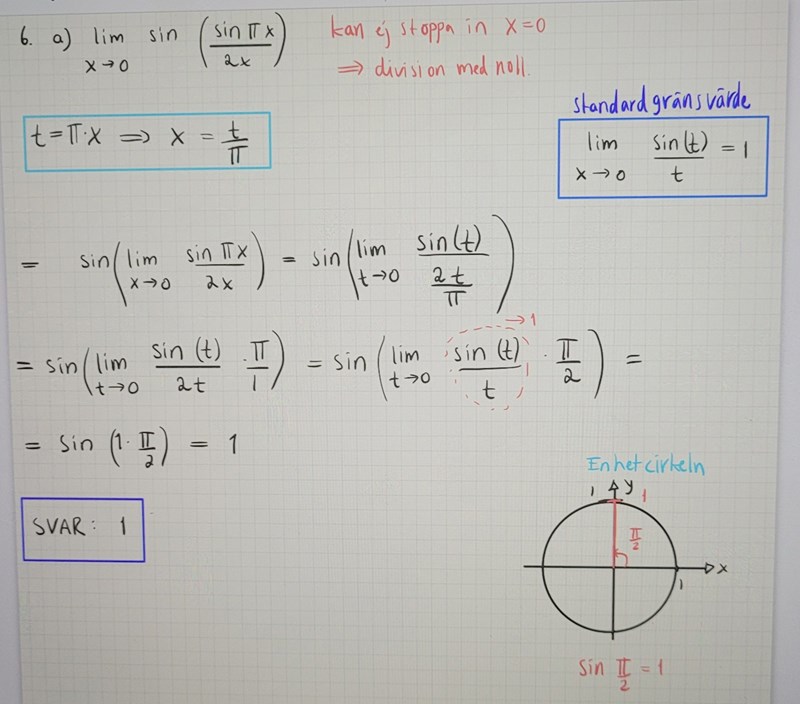 6. a) lim x→0 sin (sin πx / 2x) kan ej stoppa in x=0
⇒ division med noll.
standardgränsvärde
t=π·x ⇒ x = t/π
lim x→0 sin(t)/t = 1
= sin(lim x→0 sin πx / 2x) = sin(lim t→0 sin(t) / (2t/π))
→1
= sin(lim t→0 sin(t)/2t · π/1) = sin(lim t→0 sin(t)/t · π/2) =
= sin (1·π/2) = 1
Enhetcirkeln
SVAR: 1
1 y 1
π/2
x
1
sin π/2 = 1